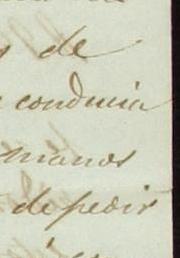 de
conducia
manos
de pedir